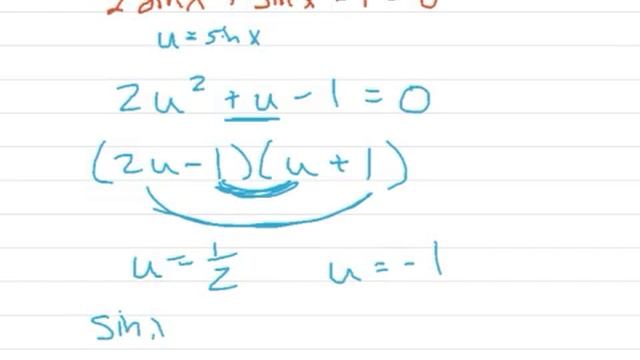 u = sin x
2u² + u - 1 = 0
(2u - 1)(u + 1)
u = 1/2 u = -1
sin x